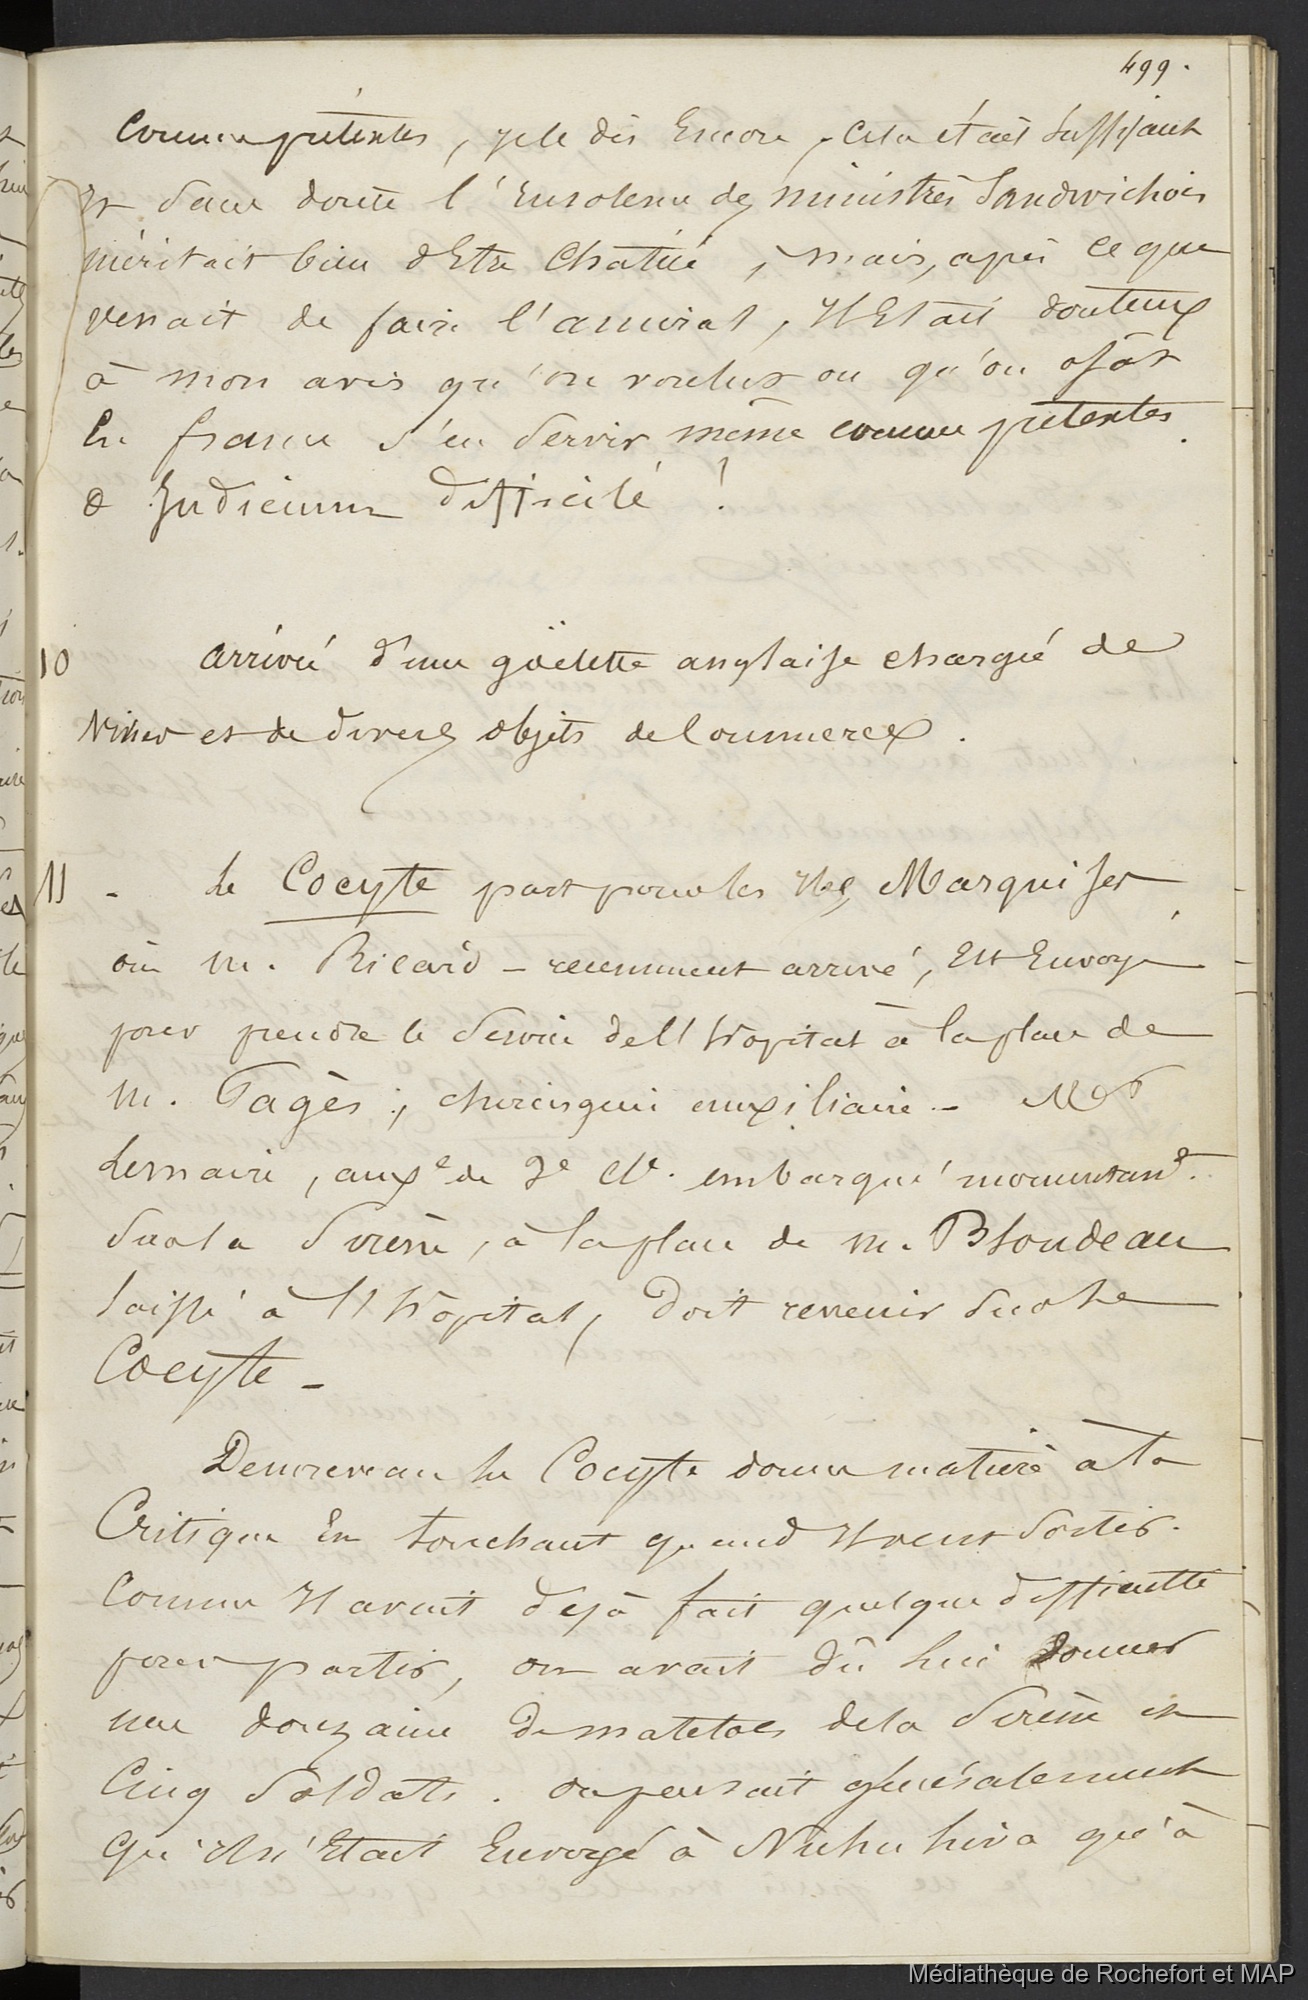 499.
comme prétextes, je le dis Encore, cela était suffisant
et sans doute l'Ensolence des ministres Sandwichois
méritait bien d'Etre chatiée, mais, après ce que
venait de faire l'amiral, il Etait douteux
à mon avis qu'on voulut ou qu'on osât
En france s'en servir même comme prétextes.
o Judicium difficile !
10 arrivée d'une goëlette anglaise chargée de
vivres et de divers objets de Commerce.
11 - Le Cocyte part pour les iles Marquises
où m. Ricard - recemment arrivé, Est Envoyé
pour prendre le Service de l'hopital à la place de
m. Pagès, chirurgien auxiliaire - Mr
Lemaire, auxre de 3e cle. embarqué momentant.
sur la Sirène, à la place de m. Blondeau
laissé à l'hôpital, doit revenir sur le
Cocyte -
De nouveau le Cocyte donne matière à la
Critique En touchant quand il veut sortir.
Comme il avait dejà fait quelque difficulté
pour partir, on avait dû lui donner
une douzaine de matelots de la Sirène et
Cinq Soldats. on pensait généralement
qu'il n'Etait Envoyé à Nuhu hiva qu'à
Médiathèque de Rochefort et MAP